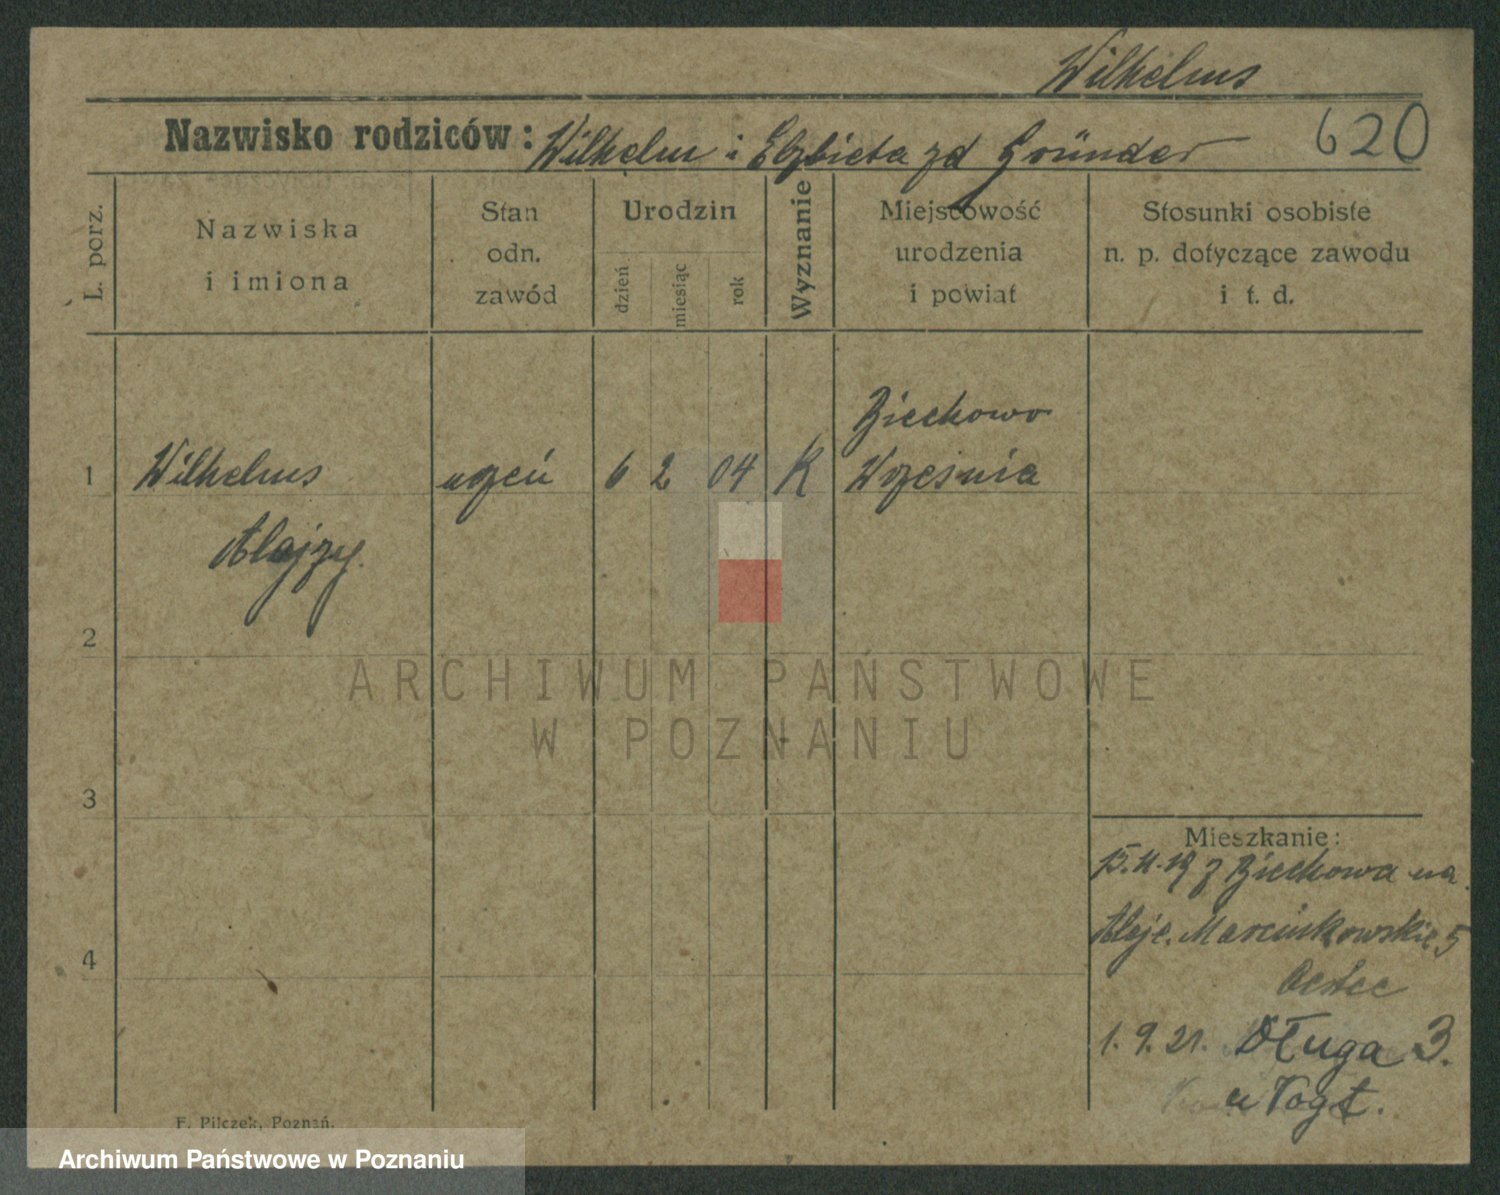 Wilhelms
Nazwisko rodziców: Wilhelm i Elzbieta zd Gründer
620
L. porz.
Nazwiska
i imiona
Stan
odn.
zawód
Urodzin
dzień
miesiąc
rok
Wyznanie
Miejscowość
urodzenia
i powiat
Stosunki osobiste
n. p. dotyczące zawodu
i t. d.
1
Wilhelms
Alojzy
uczeń
6 2 04 K
Biechowo
Września
2
3
4
Mieszkanie:
z Biechowa na
Aleje. Marcinkowskie 5
1. 9. 21. Długa 3.
u Vogt.
F. Pilczek, Poznań.
ARCHIWUM PAŃSTWOWE
W POZNANIU
Archiwum Państwowe w Poznaniu